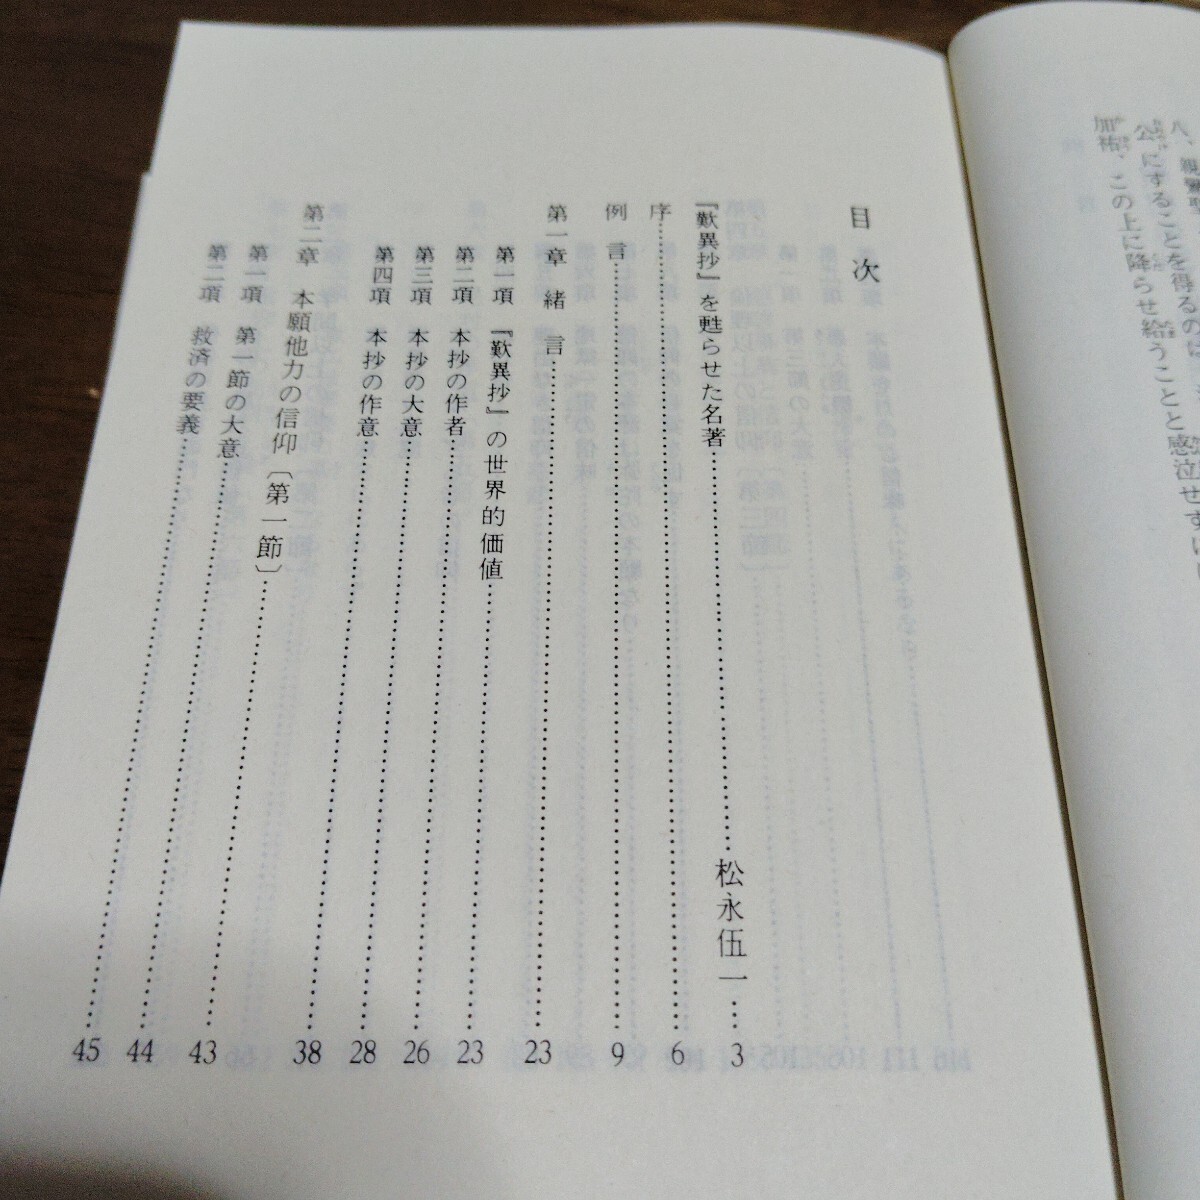 公にすることを得るのは、
加祐、この上に降らせ給うことと感泣せずに
目次
『歎異抄』を甦らせた名著……松永伍一…3
序……6
例言……9
第一章 緒言……23
第一項 『歎異抄』の世界的価値……23
第二項 本抄の作者……26
第三項 本抄の大意……28
第四項 本抄の作意……38
第二章 本願他力の信仰〔第一節〕……43
第一項 第一節の大意……44
第二項 救済の要義……45